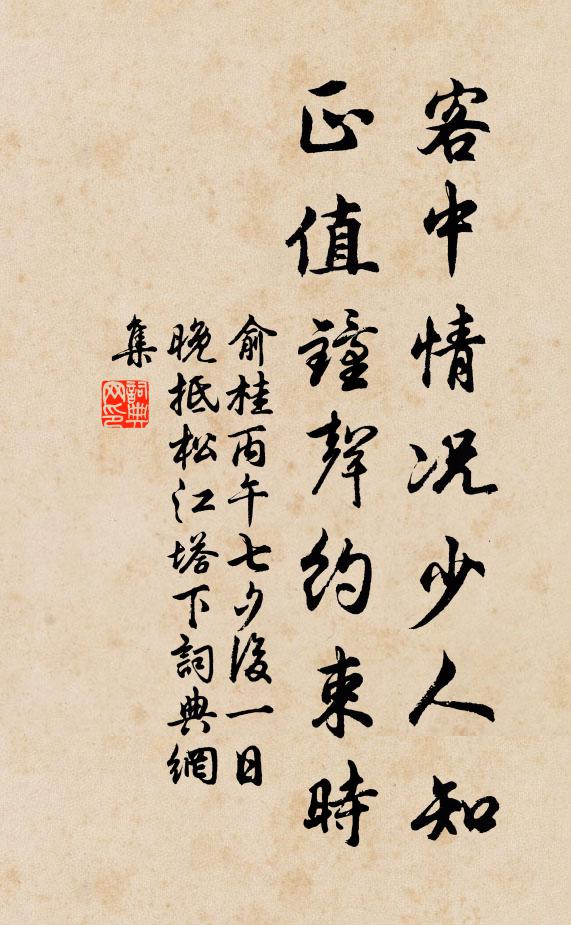 客中情况少人知
正值鐘聲約束時
俞桂丙午七夕後一日
晚抵松江塔下詞典網
集
詞典
网印